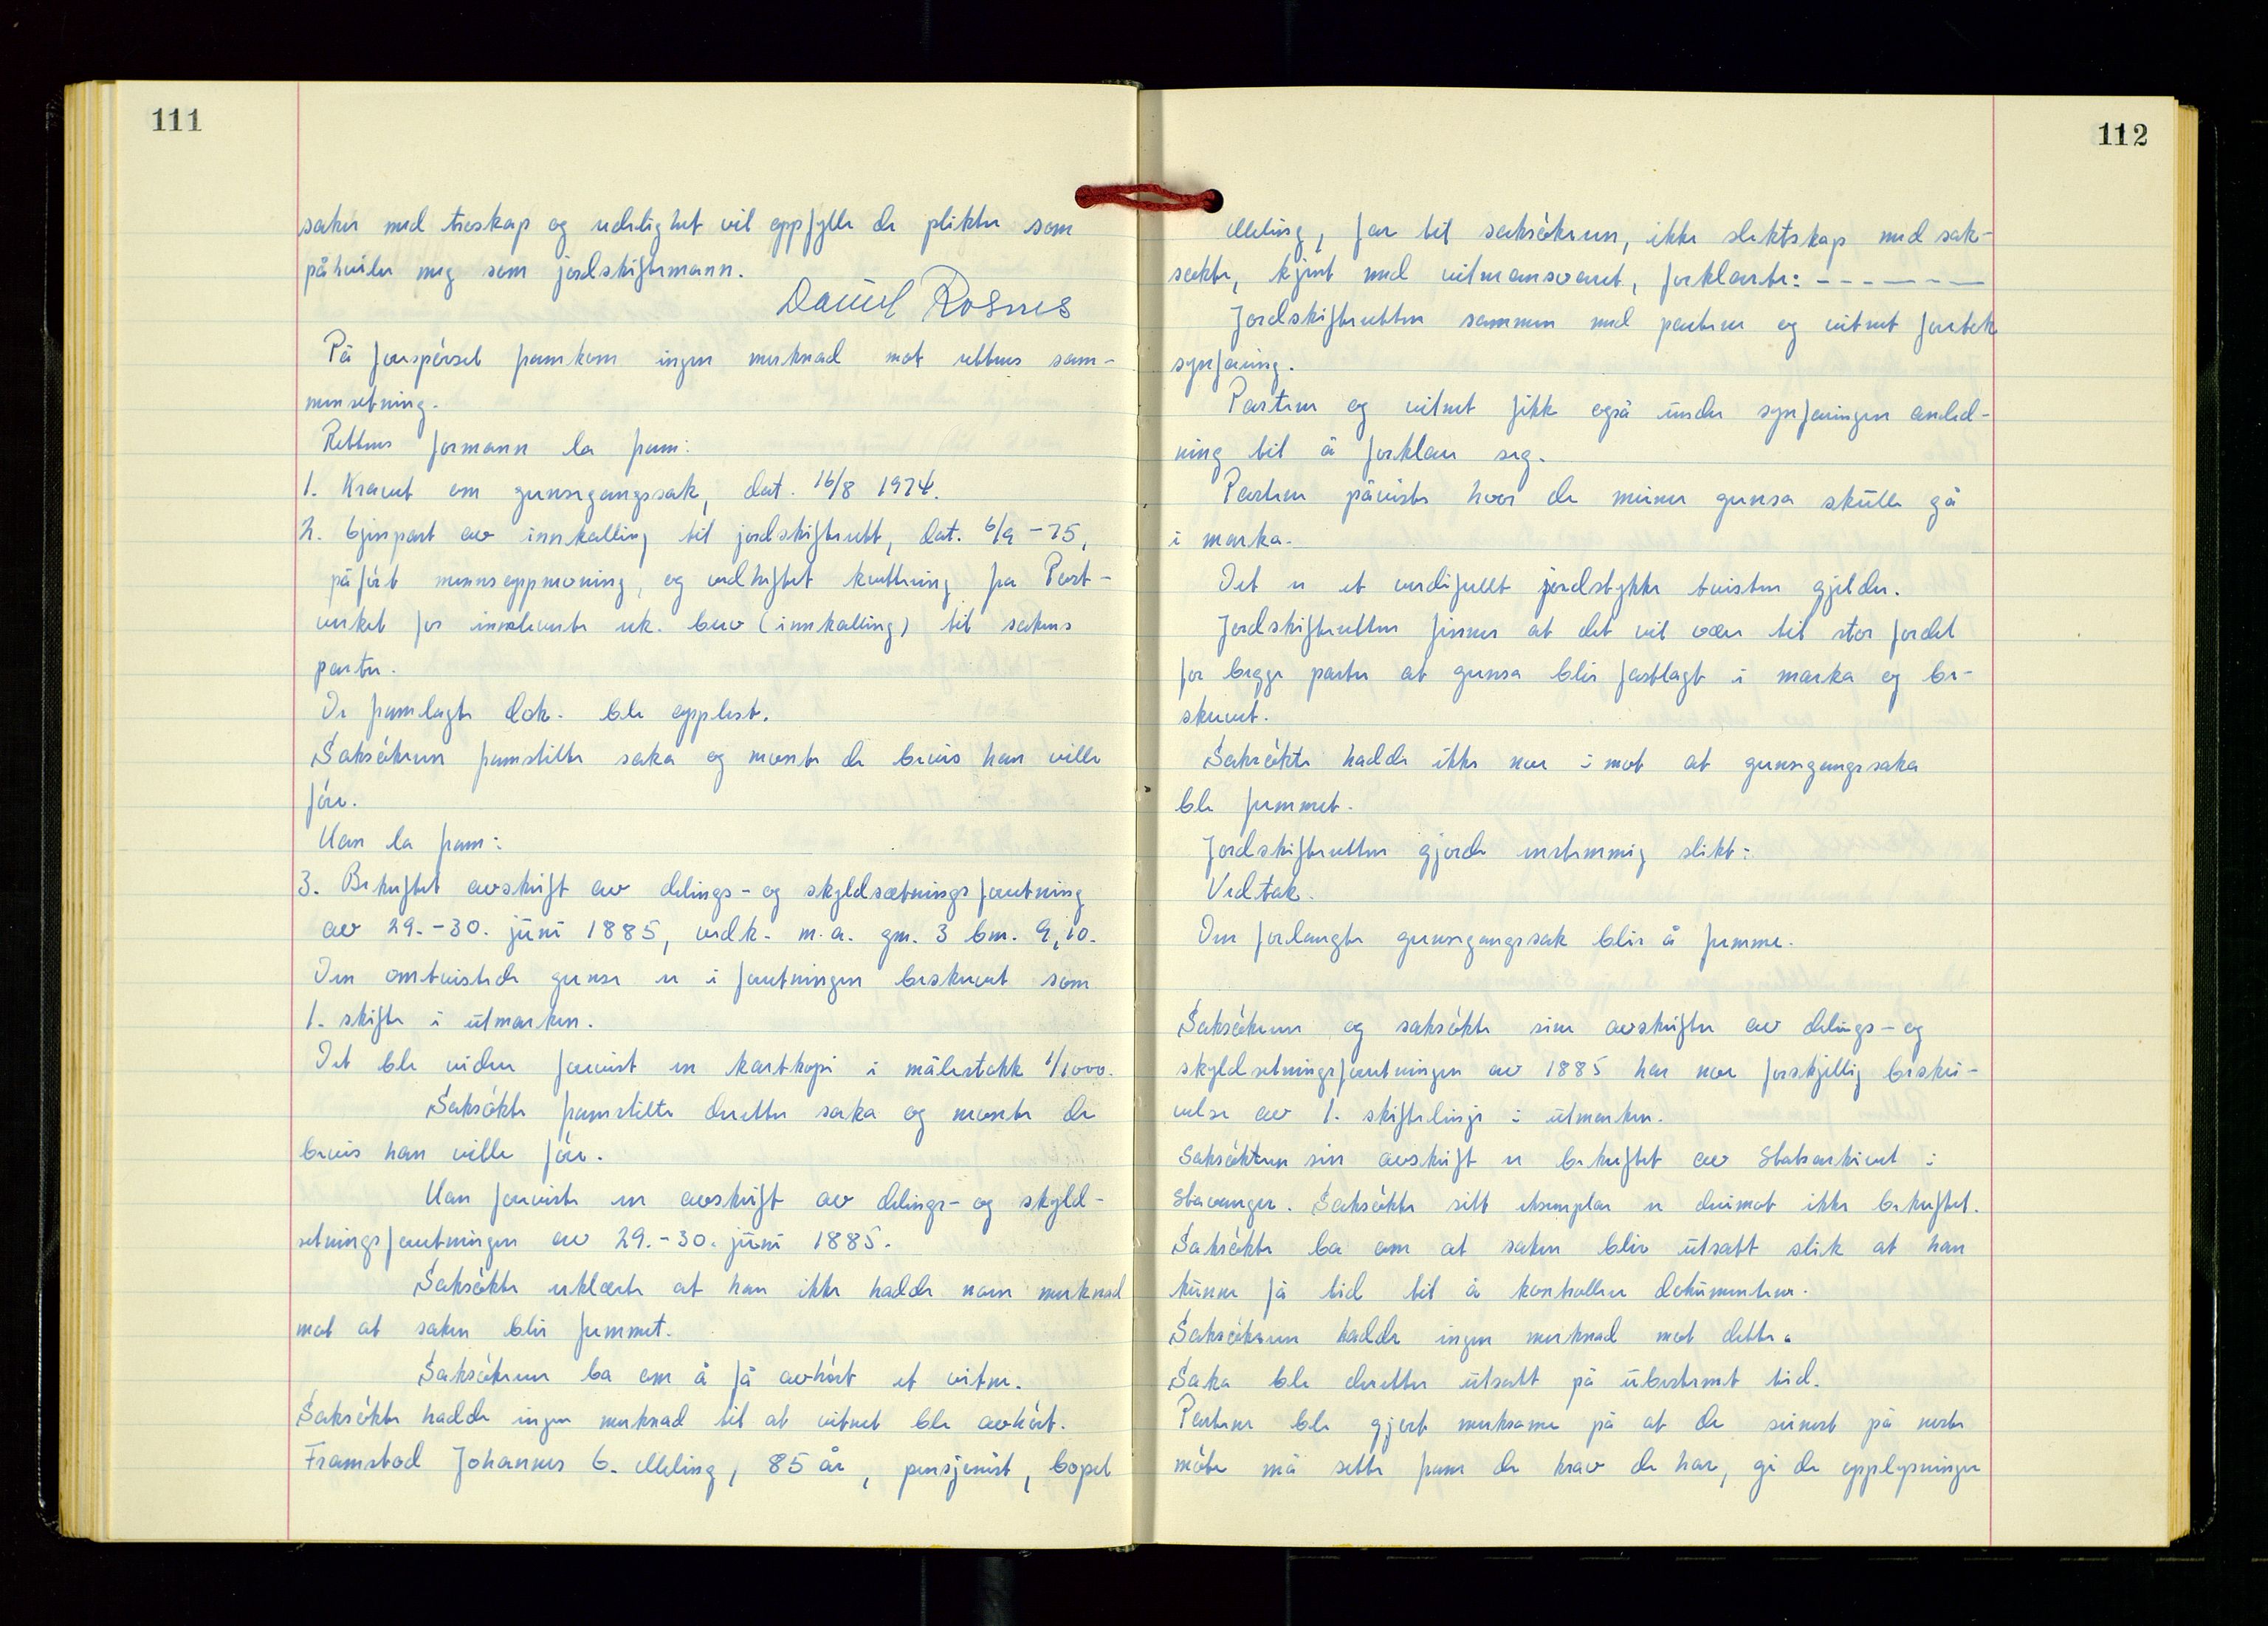 111
saker med troskap og redelighet vil oppfylle de plikter som
påhviler meg som jordskiftemann.
Daniel Rosnes
På forespørsel framkom ingen merknad mot rettens sam-
mensetning.
Rettens formann la fram:
1. Kravet om grensegangssak, dat. 16/8 1974.
2. Gjenpart av innkalling til jordskifterett, dat. 6/9 -75,
påført minnsoppmoning, og vedheftet kvittering fra Post-
verket for innleverte rek. brev (innkalling) til sakens
parter.
De framlagte dok. ble opplest.
Saksøkeren framstilte saka og nevnte de bevis han ville
føre.
Han la fram:
3. Bekreftet avskrift av delings- og skyldsætningsforretning
av 29.-30. juni 1885, vedk. m.a. gnr. 3 bnr. 9, 10.
Den omtvistede grense er i forretningen beskrevet som
1. skifte i utmarken.
Det ble videre forevist en kartkopi i målestokk 1/1000.
Saksøkte framstilte deretter saka og nevnte de
bevis han ville føre.
Han foreviste en avskrift av delings- og skyld-
setningsforretningen av 29.-30. juni 1885.
Saksøkte erklærte at han ikke hadde noen merknad
mot at saken blir fremmet.
Saksøkeren ba om å få avhørt et vitne.
Saksøkte hadde ingen merknad til at vitnet ble avhørt.
Framstod Johannes G. Meling, 85 år, pensjonist, bopel
112
Meling, far til saksøkeren, ikke slektskap med sak-
søkte, kjent med vitneansvaret, forklarte: - - - - - - -
Jordskifteretten sammen med partene og vitnet foretok
synfaring.
Partene og vitnet fikk også under synfaringen anled-
ning til å forklare seg.
Partene påviste hvor de meiner grensa skulle gå
i marka.
Det er et verdifullt jordstykke tvisten gjelder.
Jordskifteretten finner at det vil være til stor fordel
for begge parter at grensa blir fastlagt i marka og be-
skrevet.
Saksøkte hadde ikke noe i mot at grensegangssaka
ble fremmet.
Jordskifteretten gjorde enstemmig slikt:
Vedtak.
Den forlangte grensegangssak blir å fremme.
Saksøkeren og saksøkte sine avskrifter av delings- og
skyldsetningsforretningen av 1885 har noe forskjellig beskri-
velse av 1. skiftelinje i utmarken.
Saksøkeren sin avskrift er bekreftet av Statsarkivet i
Stavanger. Saksøkte sitt eksemplar er derimot ikke bekreftet.
Saksøkte ba om at saken blir utsatt slik at han
kunne få tid til å kontrollere dokumentene.
Saksøkeren hadde ingen merknad mot dette.
Saka ble deretter utsatt på ubestemt tid.
Partene ble gjort merksame på at de seinest på neste
møte må sette fram de krav de har, gi de opplysninger